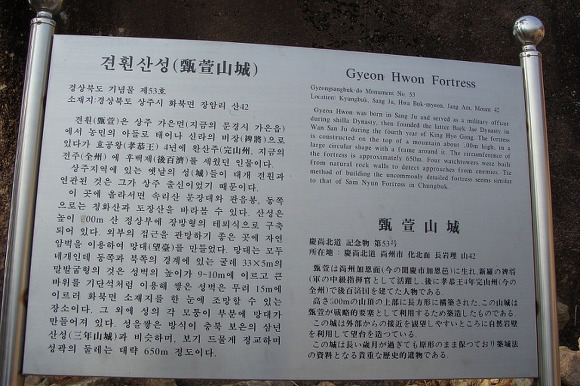 견훤산성(甄萱山城)
경상북도 기념물 제53호
소재지:경상북도 상주시 화북면 장암리 산42
견훤(甄萱)은 상주 가은면(지금의 문경시 가은읍)
에서 농민의 아들로 태어나 신라의 비장(裨將)으로
있다가 효공왕(孝恭王) 4년에 완산주(完山州, 지금의
전주(全州)에 후백제(後百濟)를 세웠던 인물이다.
상주지역에 있는 옛날의 성(城)들이 대개 견훤과
연관된 것은 그가 상주 출신이었기 때문이다.
이 곳에 올라서면 속리산 문장대와 관음봉, 동쪽
으로는 청화산과 도장산을 바라볼 수 있다. 산성은
높이 800m 산 정상부에 장방형의 테뫼식으로 구축
되어 있다. 외부의 접근을 관망하기 좋은 곳에 자연
암벽을 이용하여 망대(望臺)를 만들었다. 망대는 모두
네개인데 동쪽과 북쪽의 경계에 있는 굴레 33×5m의
말발굽형의 것은 성벽의 높이가 9~10m에 이르고 큰
바위를 기단석처럼 이용해 쌓은 성벽은 무려 15m에
이르러 화북면 소재지를 한 눈에 조망할 수 있는
장소이다. 그 외에 성의 각 모퉁이 부분에 망대가
만들어져 있다. 성을쌓은 방식이 충북 보은의 삼년
산성(三年山城)과 비슷하며, 보기 드물게 정교하며
성곽의 둘레는 대략 650m 정도이다.
Gyeon Hwon Fortress
Gyeongsangbuk-do Monument No. 53
Location: Kyungbuk, Sang Ju, Hwa Buk-myeon, Jang Am, Mount 42
Gyeon Hwon was born in Sang Ju and served as a military officer
during shilla Dynasty, then founded the latter Baek Jae Dynasty in
Wan San Ju during the fourth year of King Hyo Gong. The fortress
is constructed on the top of a mountain about 00m high, in a
large circular shape with a frame around it. The circumference of
the fortress is approximately 650m. Four watchtowers were built
from natural rock walls to detect approaches from enemies. The
method of building the uncommonly detailed fortress seems similar
to that of Sam Nyun Fortress in Chungbuk.
甄萱山城
慶尙北道 記念物 第53号
所在地 : 慶尙北道 尙州市 化北面 長岩理 山42
甄萱は尙州加恩面(今の聞慶市加恩邑)に生れ,新羅の裨将
(軍の中級指揮官)として活躍し,後に孝恭王4年完山州(今の
全州)で後百済国を建てた人物である。
高さ800mの山頂の上部に長方形に構築された,この山城は
甄萱が戦略的要塞として利用するため築造したものである。
この城は外部からの接近を観望しやすいところに自然岩壁
を利用して望台を造っている。
この城は長い歲月が過ぎても原形のまま保つており築城法
の資料となる貴重な歷史的遺物である。